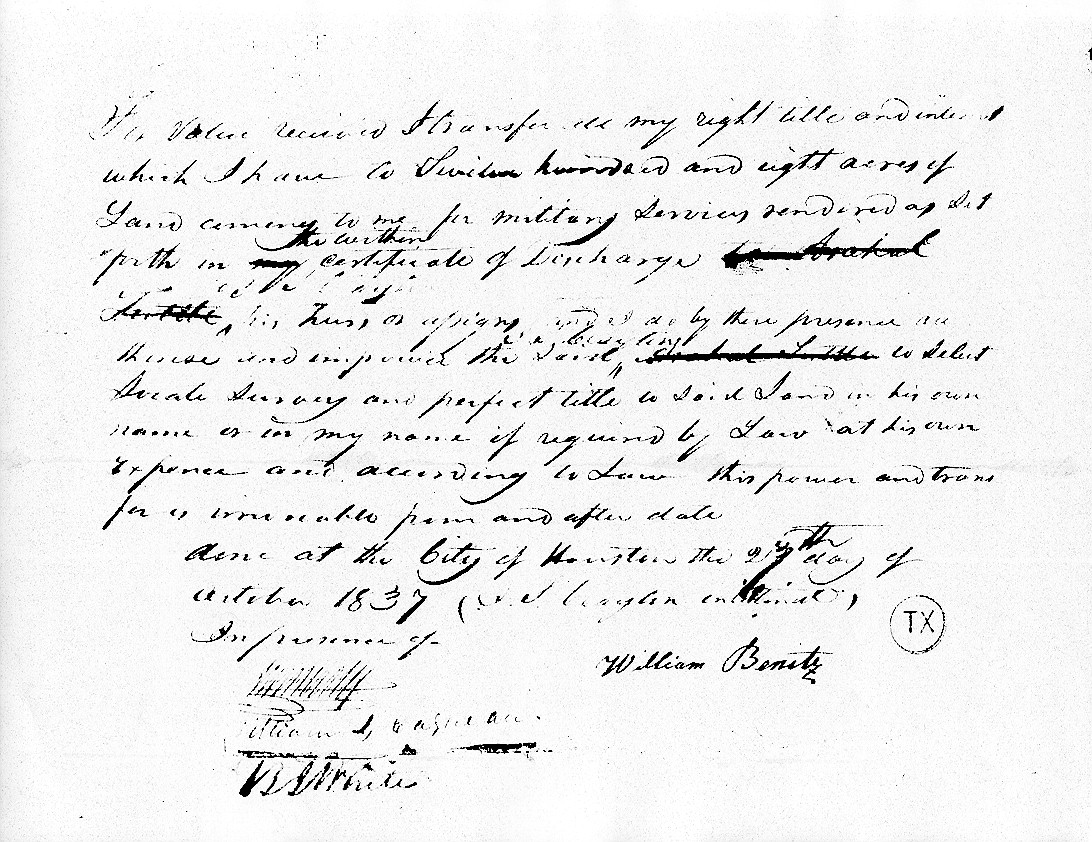 For Value received I transfer all my right title and interest
which I have to hundred and eight acres of
Land coming to me for military Services rendered as Set
the within
forth in my certificate of Discharge to
his heirs or assigns, and I do by these presence au
thorise and impower the Said to Select
Locate Survey and perfect title to Said Land in his own
name or in my name if required by Law at his own
Expence and according to Law this power and trans
fer is irrevocable from and after date
done at the City of Houston the 27th day of
October 1837
In presence of
William Benitz
William
White
TX